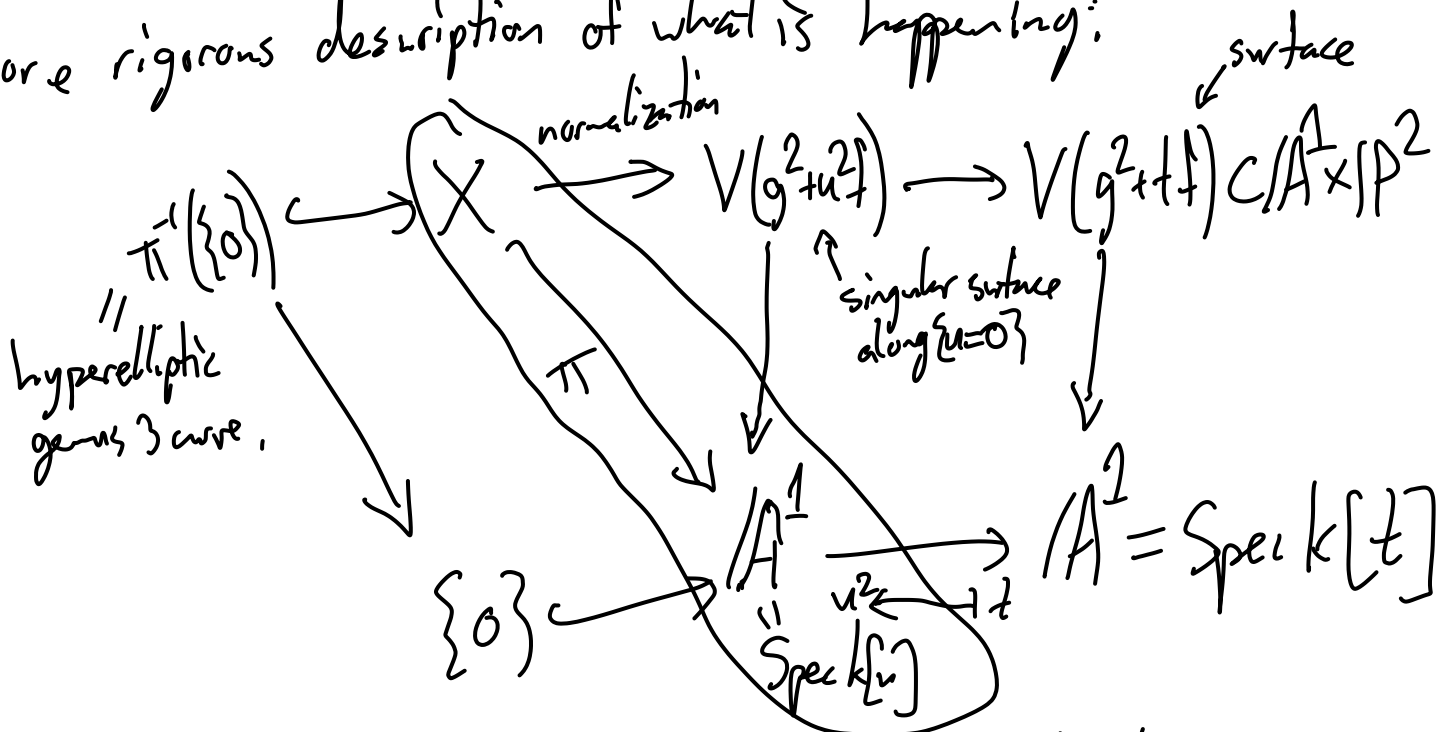 ore rigorous description of what is happening:
surface
normalization
π⁻¹({0}) ↪ X → V(g²+u²f) → V(g²+tf) ⊂ 𝔸¹×ℙ²
singular surface
along {u=0}
||
hyperelliptic
genus 3 curve.
π
{0} ↪ 𝔸¹ → 𝔸¹ = Spec k[t]
u² ↤ t
||
Spec k[u]